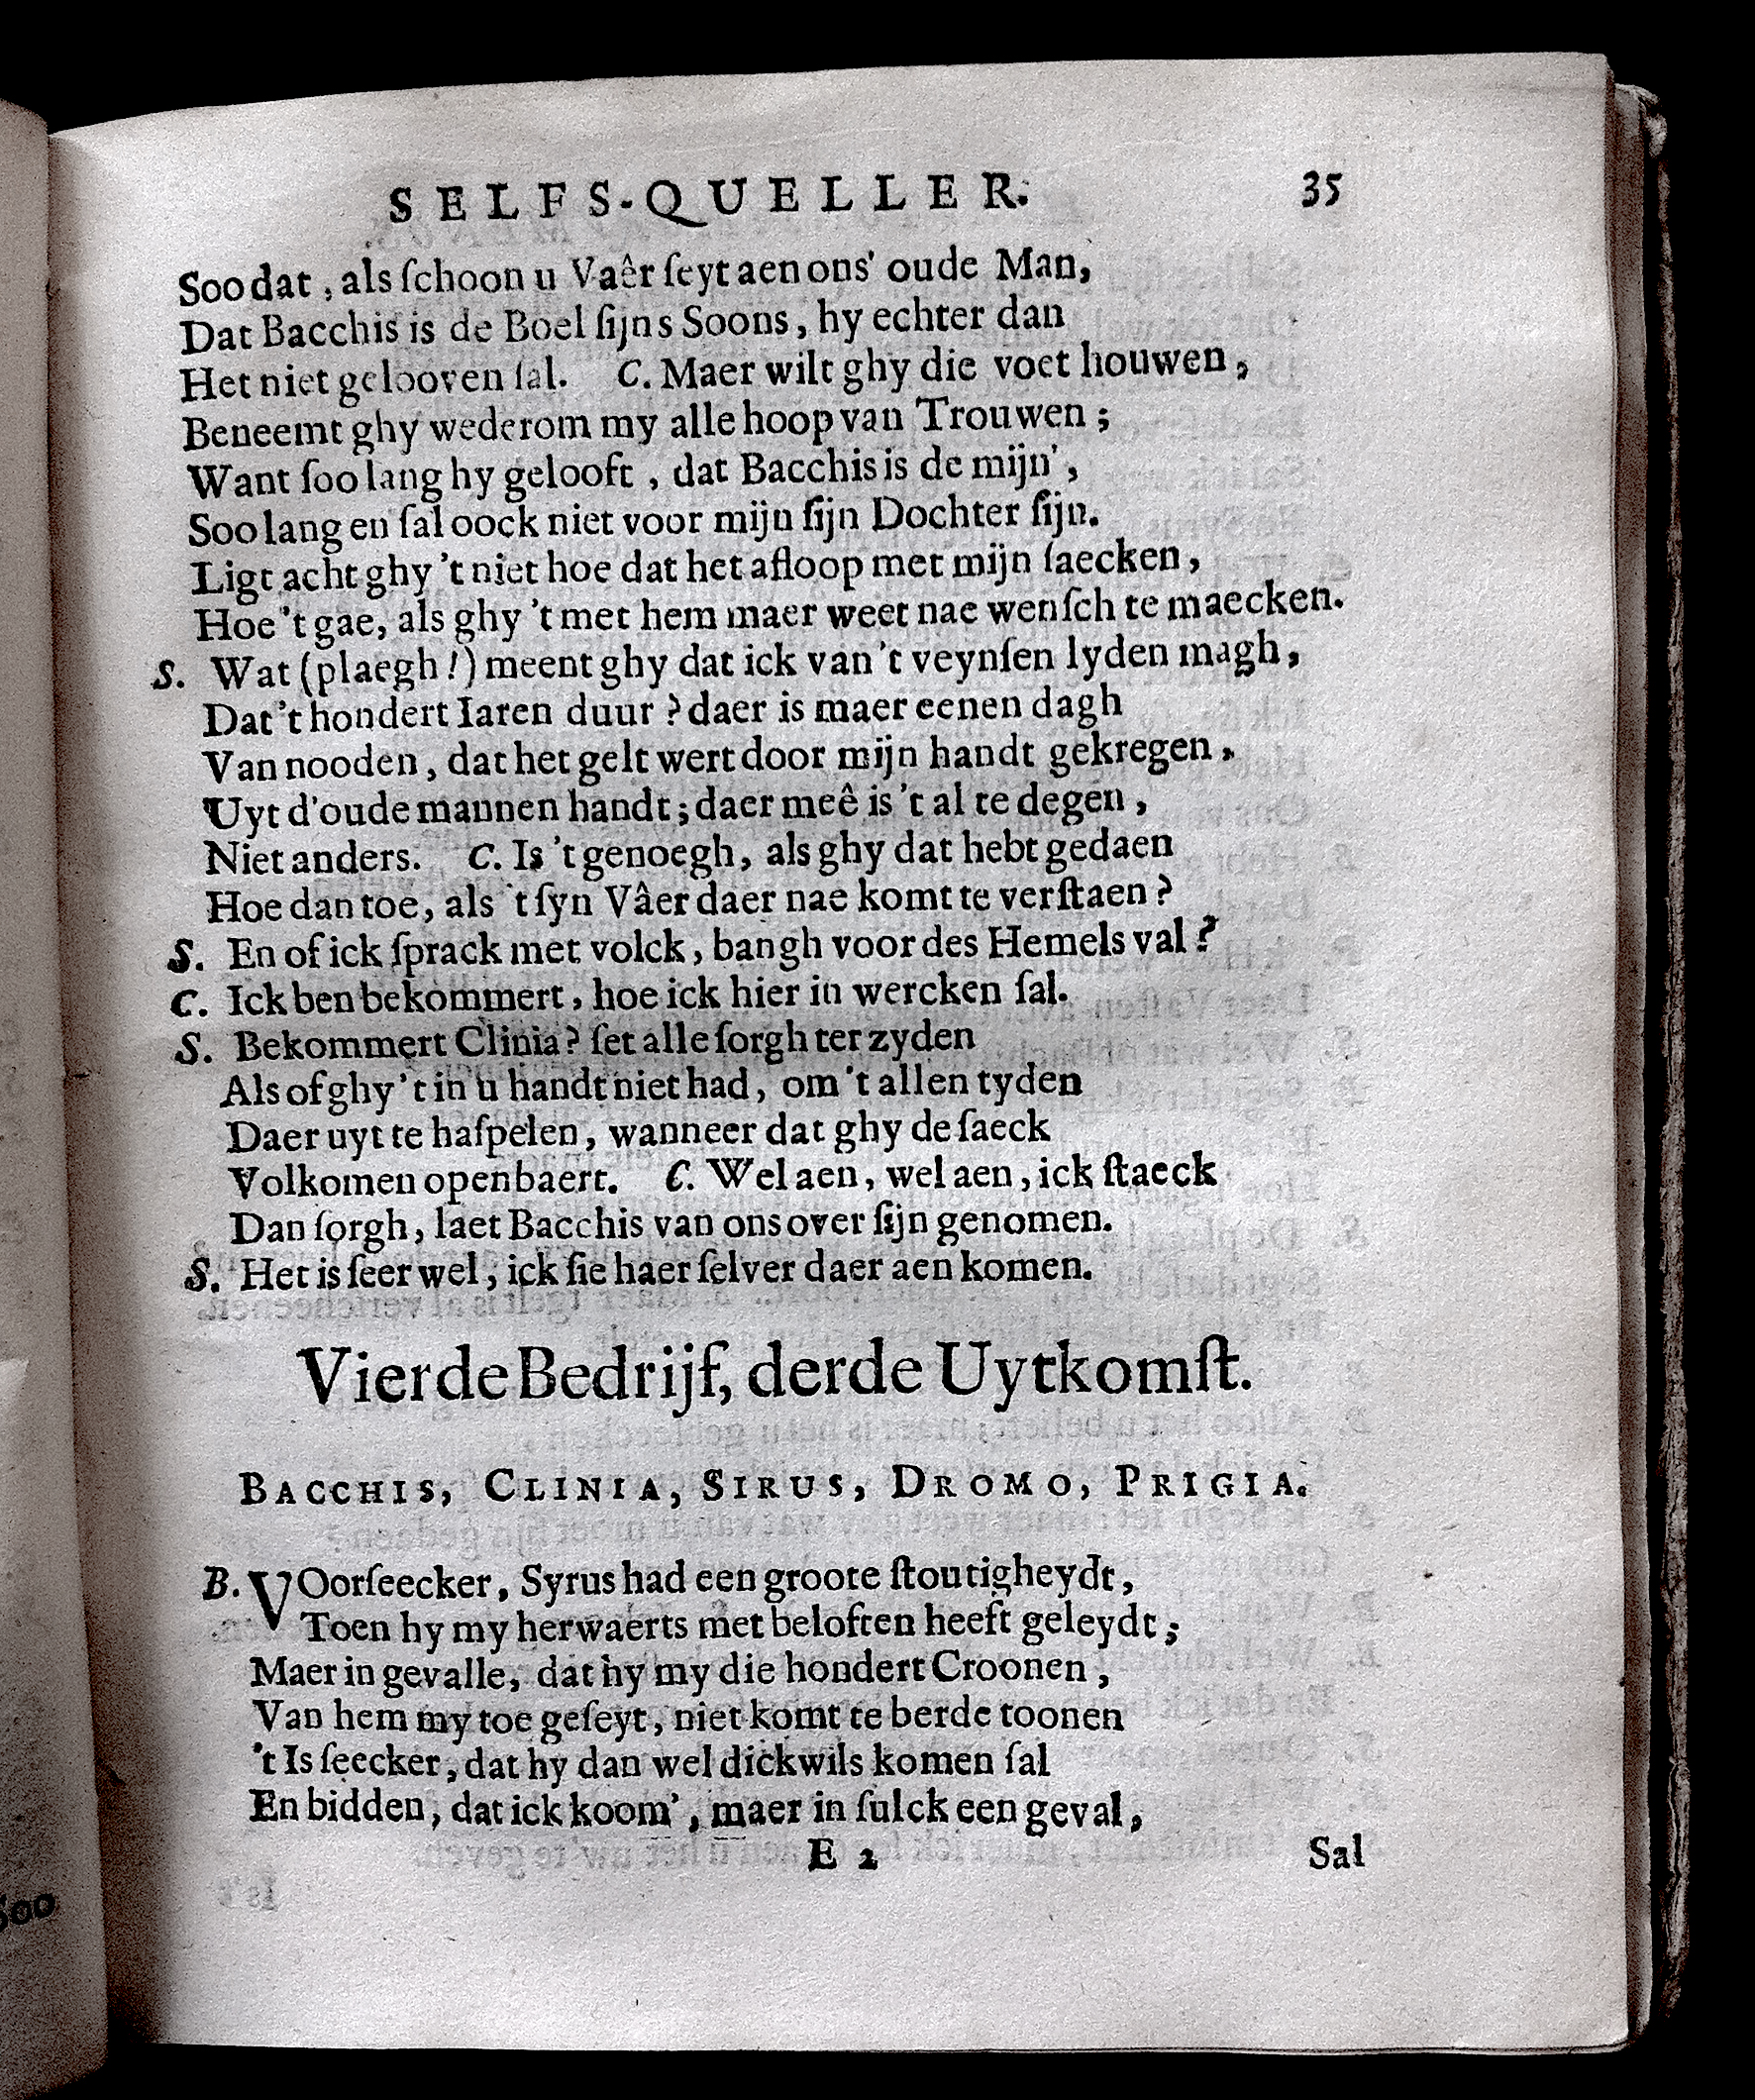 SELFS-QUELLER. 35
Soo dat, als ſchoon u Vaêr ſeyt aen ons' oude Man,
Dat Bacchis is de Boel ſijns Soons, hy echter dan
Het niet gelooven ſal. C. Maer wilt ghy die voet houwen,
Beneemt ghy wederom my alle hoop van Trouwen;
Want ſoo lang hy gelooft, dat Bacchis is de mijn',
Soo lang en ſal oock niet voor mijn ſijn Dochter ſijn.
Ligt acht ghy 't niet hoe dat het afloop met mijn ſaecken,
Hoe 't gae, als ghy 't met hem maer weet nae wenſch te maecken.
S. Wat (plaegh!) meent ghy dat ick van 't veynſen lyden magh,
Dat 't hondert Iaren duur? daer is maer eenen dagh
Van nooden, dat het gelt wert door mijn handt gekregen,
Uyt d'oude mannen handt; daer meê is 't al te degen,
Niet anders. C. Is 't genoegh, als ghy dat hebt gedaen
Hoe dan toe, als 't ſyn Vâer daer nae komt te verſtaen?
S. En of ick ſprack met volck, bangh voor des Hemels val?
C. Ick ben bekommert, hoe ick hier in wercken ſal.
S. Bekommert Clinia? ſet alle ſorgh ter zyden
Als of ghy 't in u handt niet had, om 't allen tyden
Daer uyt te haſpelen, wanneer dat ghy de ſaeck
Volkomen openbaert. C. Wel aen, wel aen, ick ſtaeck
Dan ſorgh, laet Bacchis van ons over ſijn genomen.
S. Het is ſeer wel, ick ſie haer ſelver daer aen komen.
Vierde Bedrijf, derde Uytkomſt.
BACCHIS, CLINIA, SIRUS, DROMO, PRIGIA.
B. VOorſeecker, Syrus had een groote ſtoutigheydt,
Toen hy my herwaerts met beloften heeft geleydt;
Maer in gevalle, dat hy my die hondert Croonen,
Van hem my toe geſeyt, niet komt te berde toonen
't Is ſeecker, dat hy dan wel dickwils komen ſal
En bidden, dat ick koom', maer in ſulck een geval,
E 2 Sal